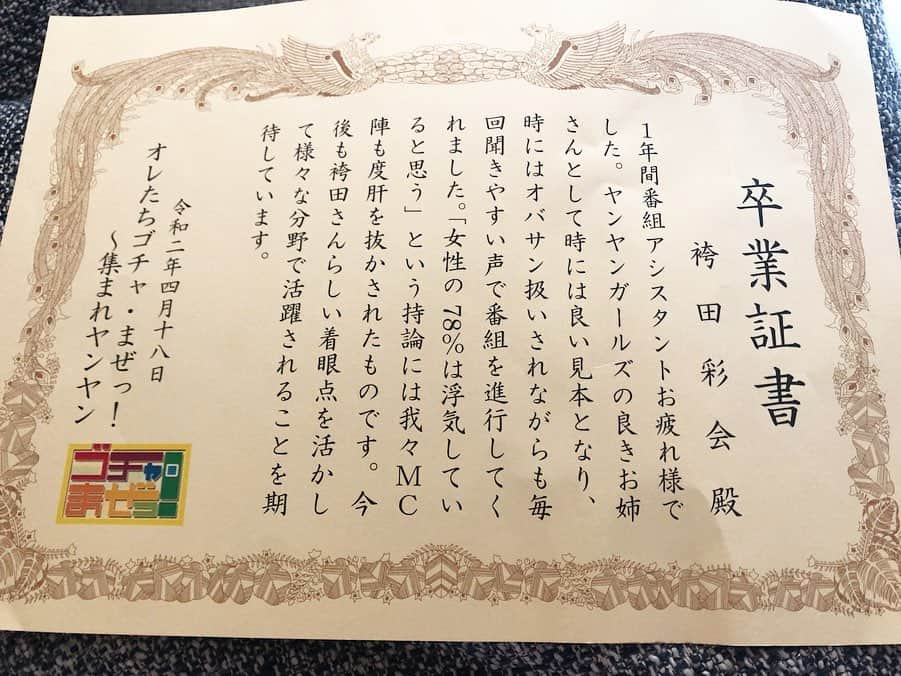 卒業証書
袴田彩会殿
1年間番組アシスタントお疲れ様で
した。ヤンヤンガールズの良きお姉
さんとして時には良い見本となり、
時にはオバサン扱いされながらも毎
回聞きやすい声で番組を進行してく
れました。「女性の78%は浮気してい
ると思う」という持論には我々MC
陣も度肝を抜かされたものです。今
後も袴田さんらしい着眼点を活かし
て様々な分野で活躍されることを期
待しています。
令和二年四月十八日
オレたちゴチャ・まぜっ!
~集まれヤンヤン
ゴチャ・
まぜっ!